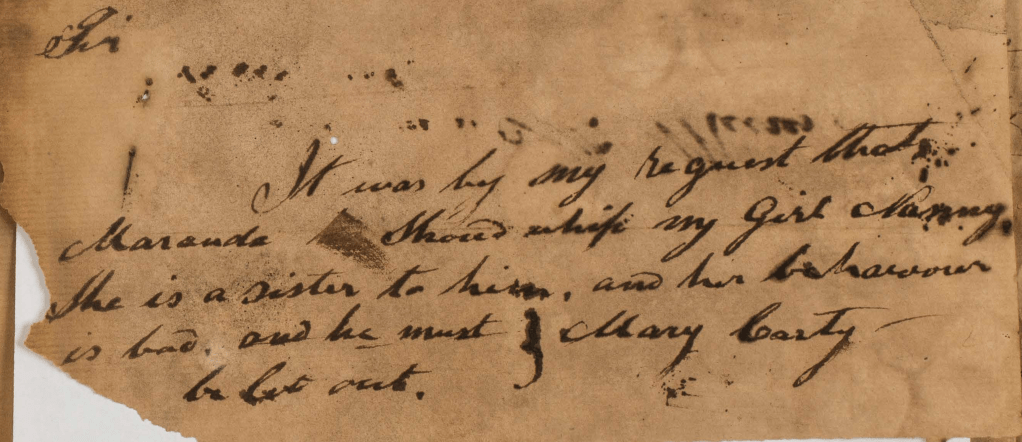 Sir
It was by my request that
Maranda Should whip my Girl Nanny,
She is a sister to him, and her behavouer
is bad, and he must } Mary Carty
be let out.